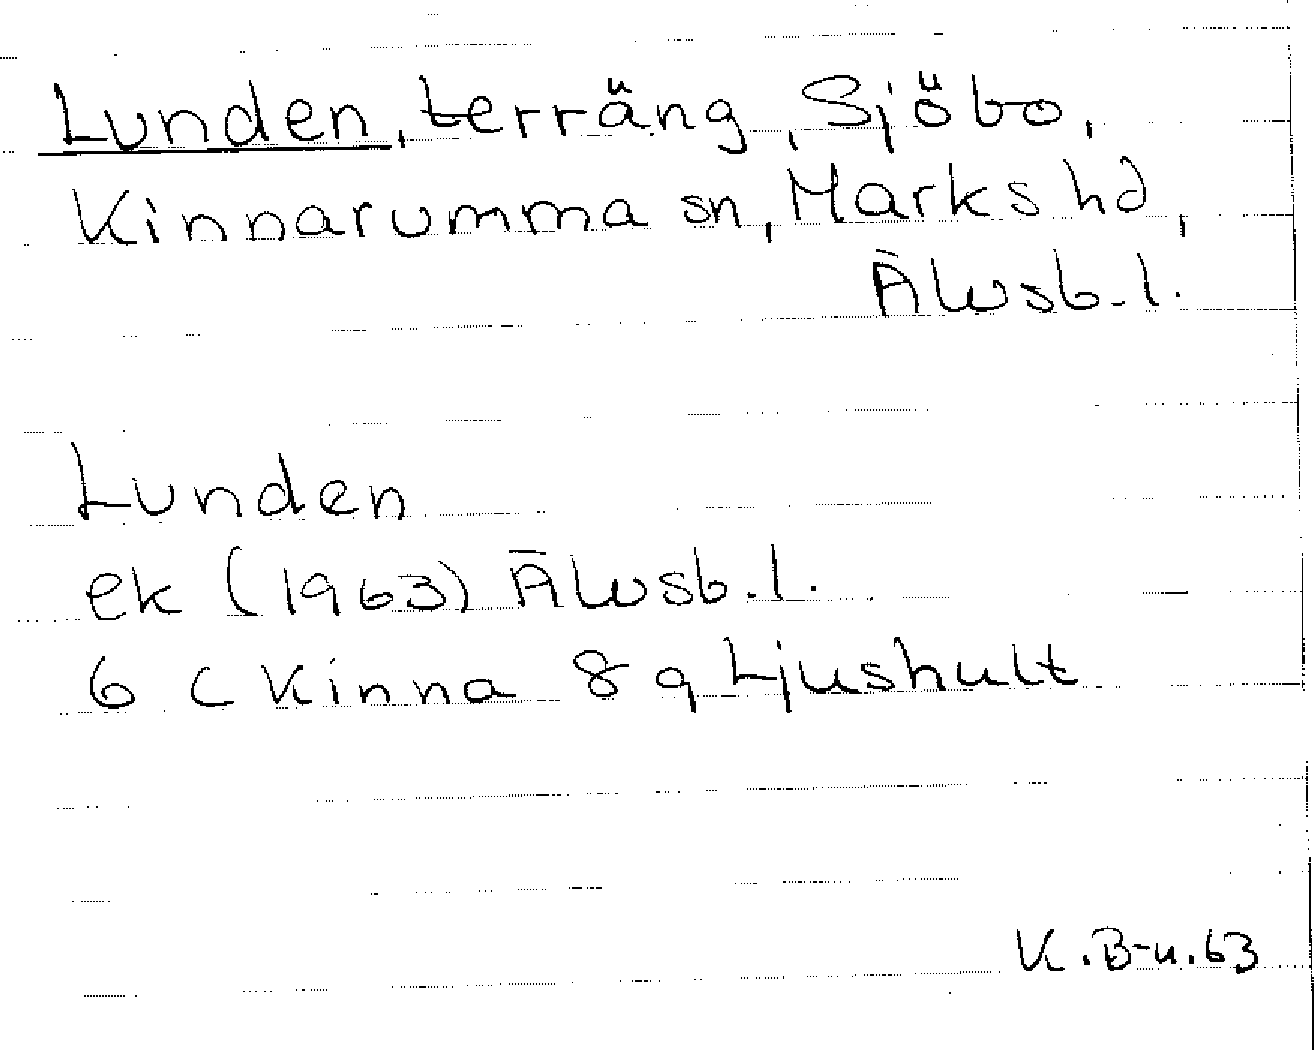 Lunden, terräng, Sjöbo,
Kinnarumma sn, Marks hd,
Älvsb. l.
Lunden
ek (1963) Älvsb. l.
6 C Kinna 8 q Ljushult
K. B-n. 63